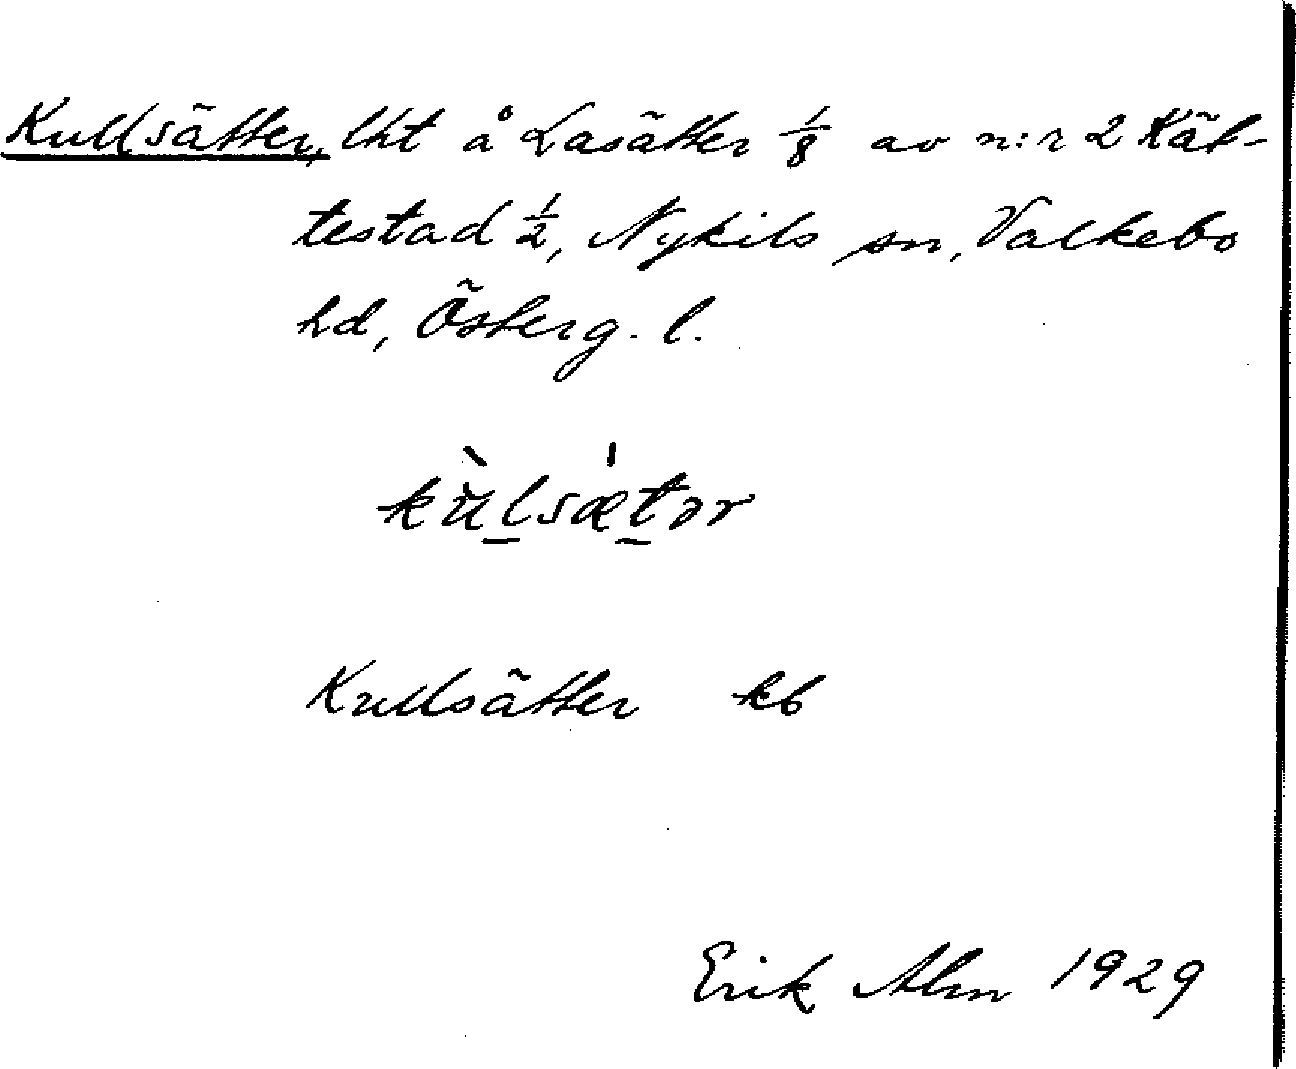 Kullsätter, lht å Lasätter 1/8 av n:r 2 Kät-
testad 1/2, Nykils sn, Valkebo
hd, Österg. l.
kùlsæ̍tər
Kullsätter kb
Erik Alm 1929